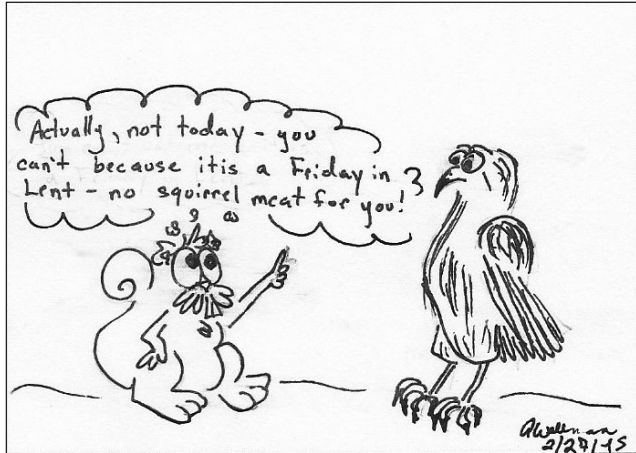 Actually, not today - you
can't because itis a Friday in
Lent - no squirrel meat for you!
AWellman
2/27/15